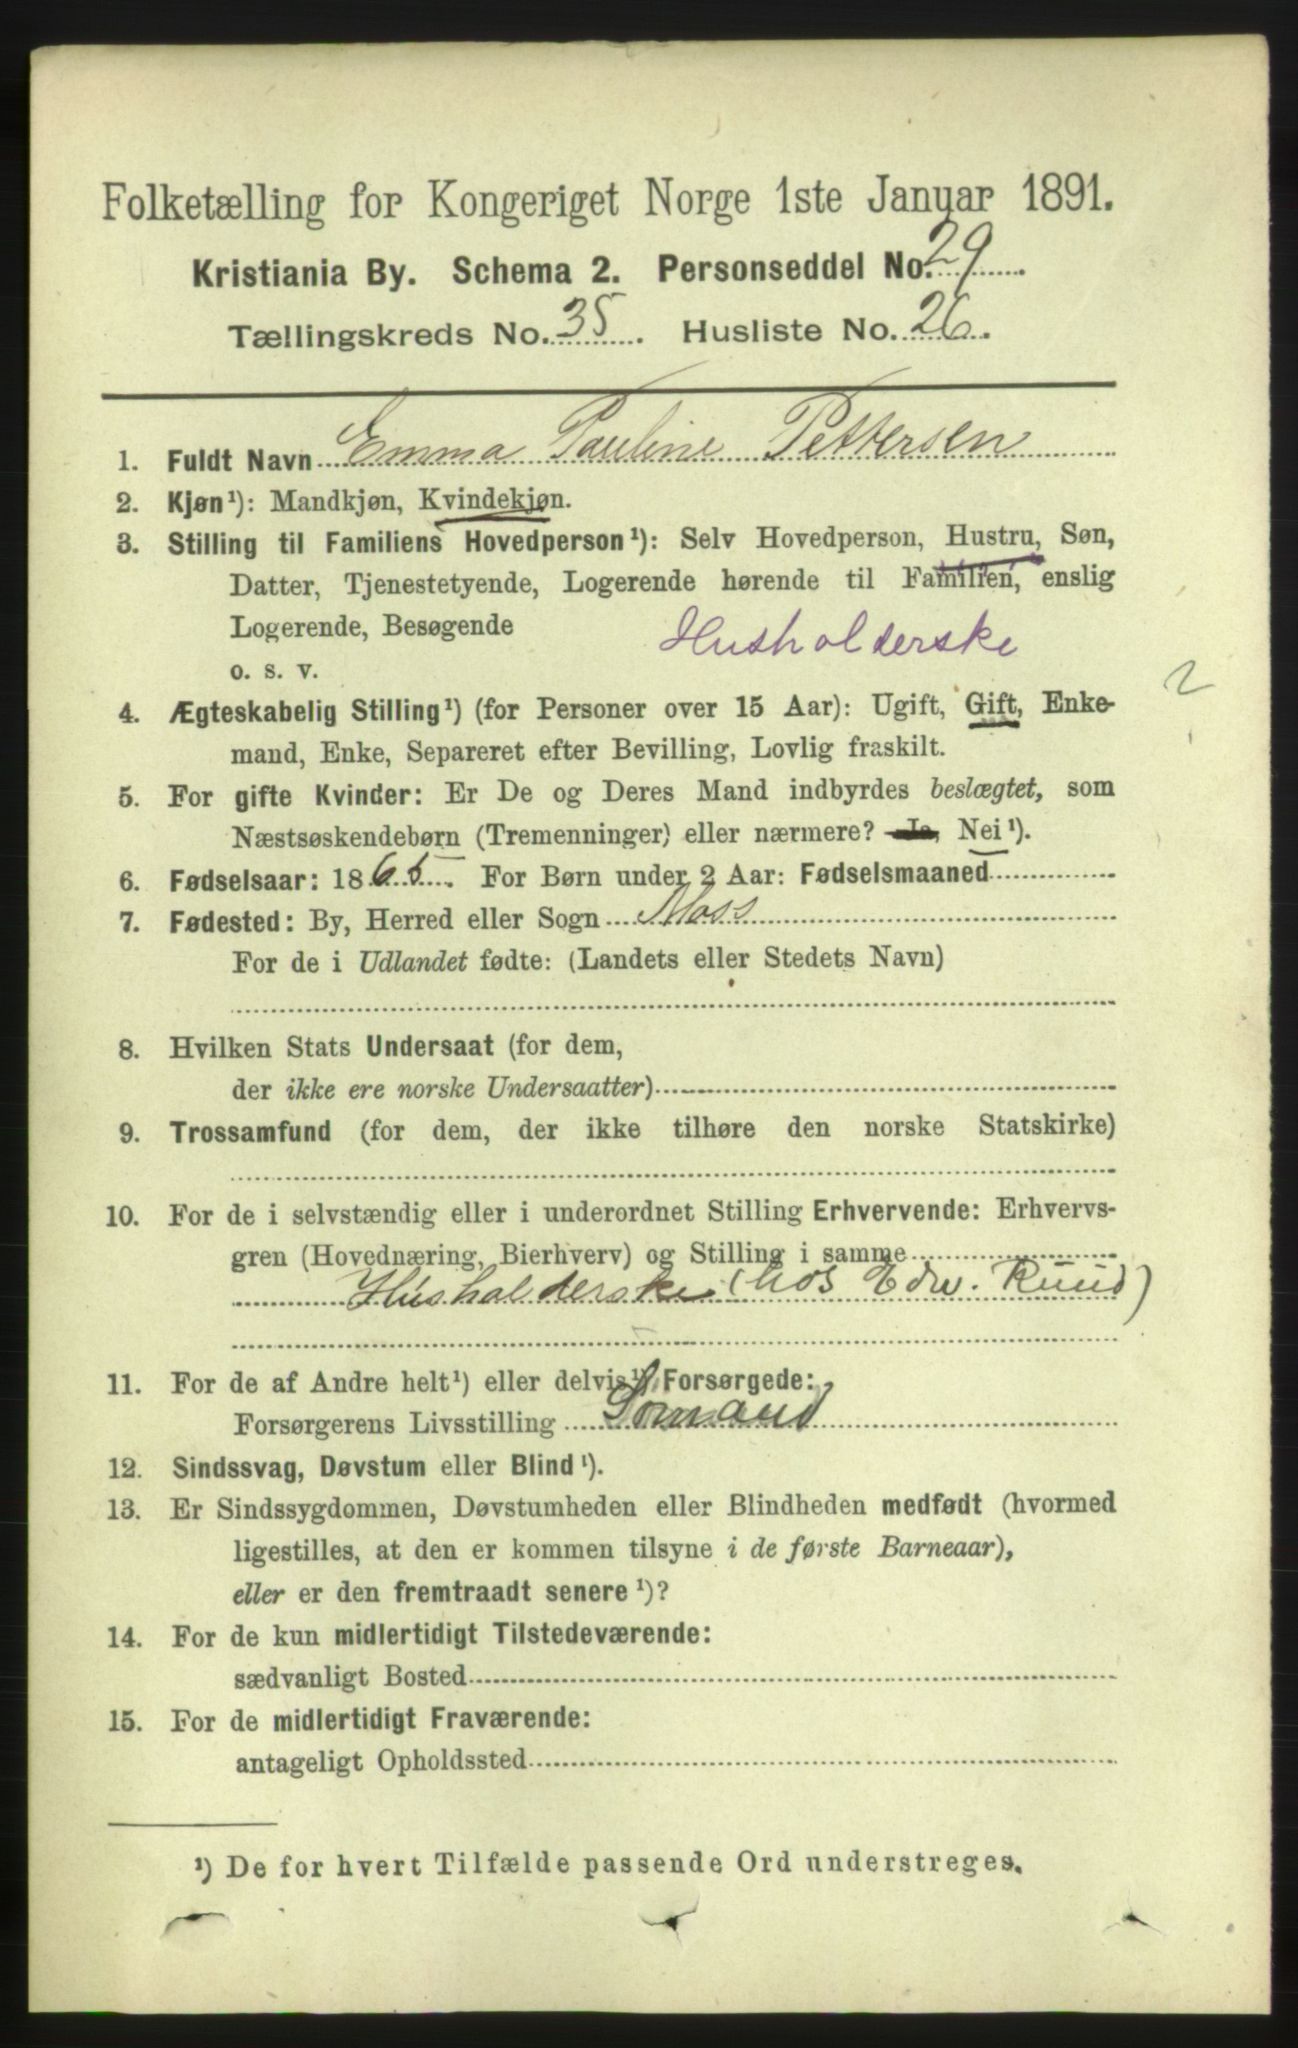 Folketælling for Kongeriget Norge 1ste Januar 1891.
Kristiania By. Schema 2. Personseddel No. 29.
Tællingskreds No. 35. Husliste No. 26.
1. Fuldt Navn Emma Pauline Pettersen
2. Kjøn¹): Mandkjøn, Kvindekjøn.
3. Stilling til Familiens Hovedperson¹): Selv Hovedperson, Hustru, Søn,
Datter, Tjenestetyende, Logerende hørende til Familien, enslig
Logerende, Besøgende
Husholderske
o. s. v.
2
4. Ægteskabelig Stilling¹) (for Personer over 15 Aar): Ugift, Gift, Enke-
mand, Enke, Separeret efter Bevilling, Lovlig fraskilt.
5. For gifte Kvinder: Er De og Deres Mand indbyrdes beslægtet, som
Næstsøskendebørn (Tremenninger) eller nærmere? Ja, Nei¹).
6. Fødselsaar: 1865. For Børn under 2 Aar: Fødselsmaaned
7. Fødested: By, Herred eller Sogn Moss
For de i Udlandet fødte: (Landets eller Stedets Navn)
8. Hvilken Stats Undersaat (for dem,
der ikke ere norske Undersaatter)
9. Trossamfund (for dem, der ikke tilhøre den norske Statskirke)
10. For de i selvstændig eller i underordnet Stilling Erhvervende: Erhvervs-
gren (Hovednæring, Bierhverv) og Stilling i samme
Husholderske (hos Edw. Ruud)
11. For de af Andre helt¹) eller delvis¹) Forsørgede:
Forsørgerens Livsstilling Sømand
12. Sindssvag, Døvstum eller Blind¹).
13. Er Sindssygdommen, Døvstumheden eller Blindheden medfødt (hvormed
ligestilles, at den er kommen tilsyne i de første Barneaar),
eller er den fremtraadt senere¹)?
14. For de kun midlertidigt Tilstedeværende:
sædvanligt Bosted
15. For de midlertidigt Fraværende:
antageligt Opholdssted
¹) De for hvert Tilfælde passende Ord understreges.